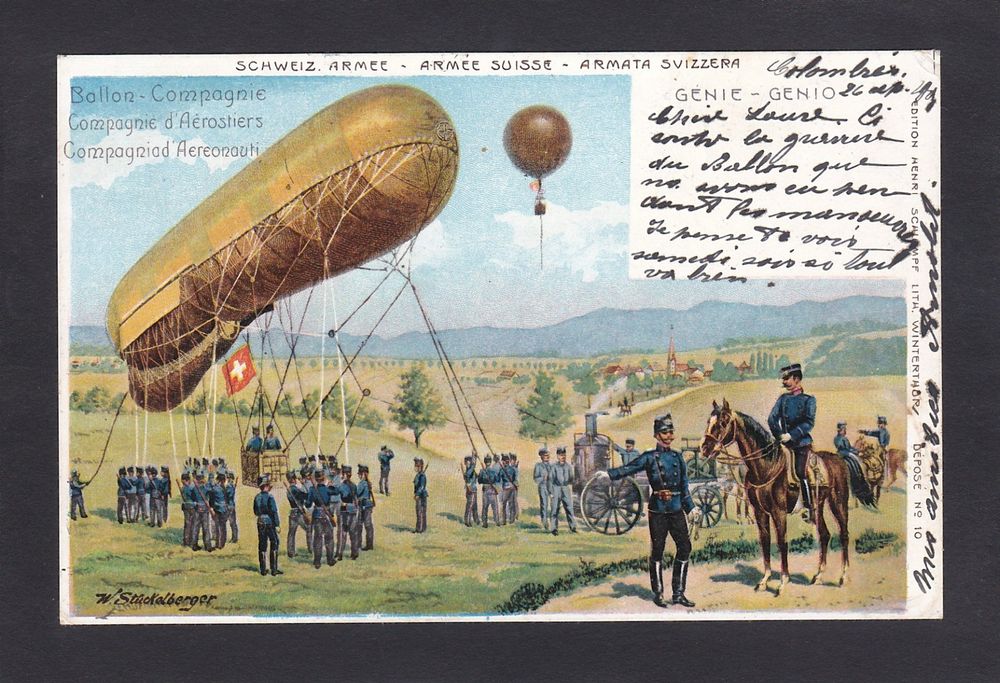 SCHWEIZ. ARMEE - ARMÉE SUISSE - ARMATA SVIZZERA
Ballon-Compagnie
Compagnie d'Aérostiers
Compagnia d'Aereonauti
GÉNIE - GENIO
Colombier.
26 sept.
Chère Laure. Ci
contre la gravure
du Ballon que
ns. avons eu pen
dant les manoeuvres
Je pense te voir
samedi soir si tout
va bien.
EDITION HENRI SCHLUMPF LITH. WINTERTHUR. DÉPOSÉ No 10
W. Stückelberger